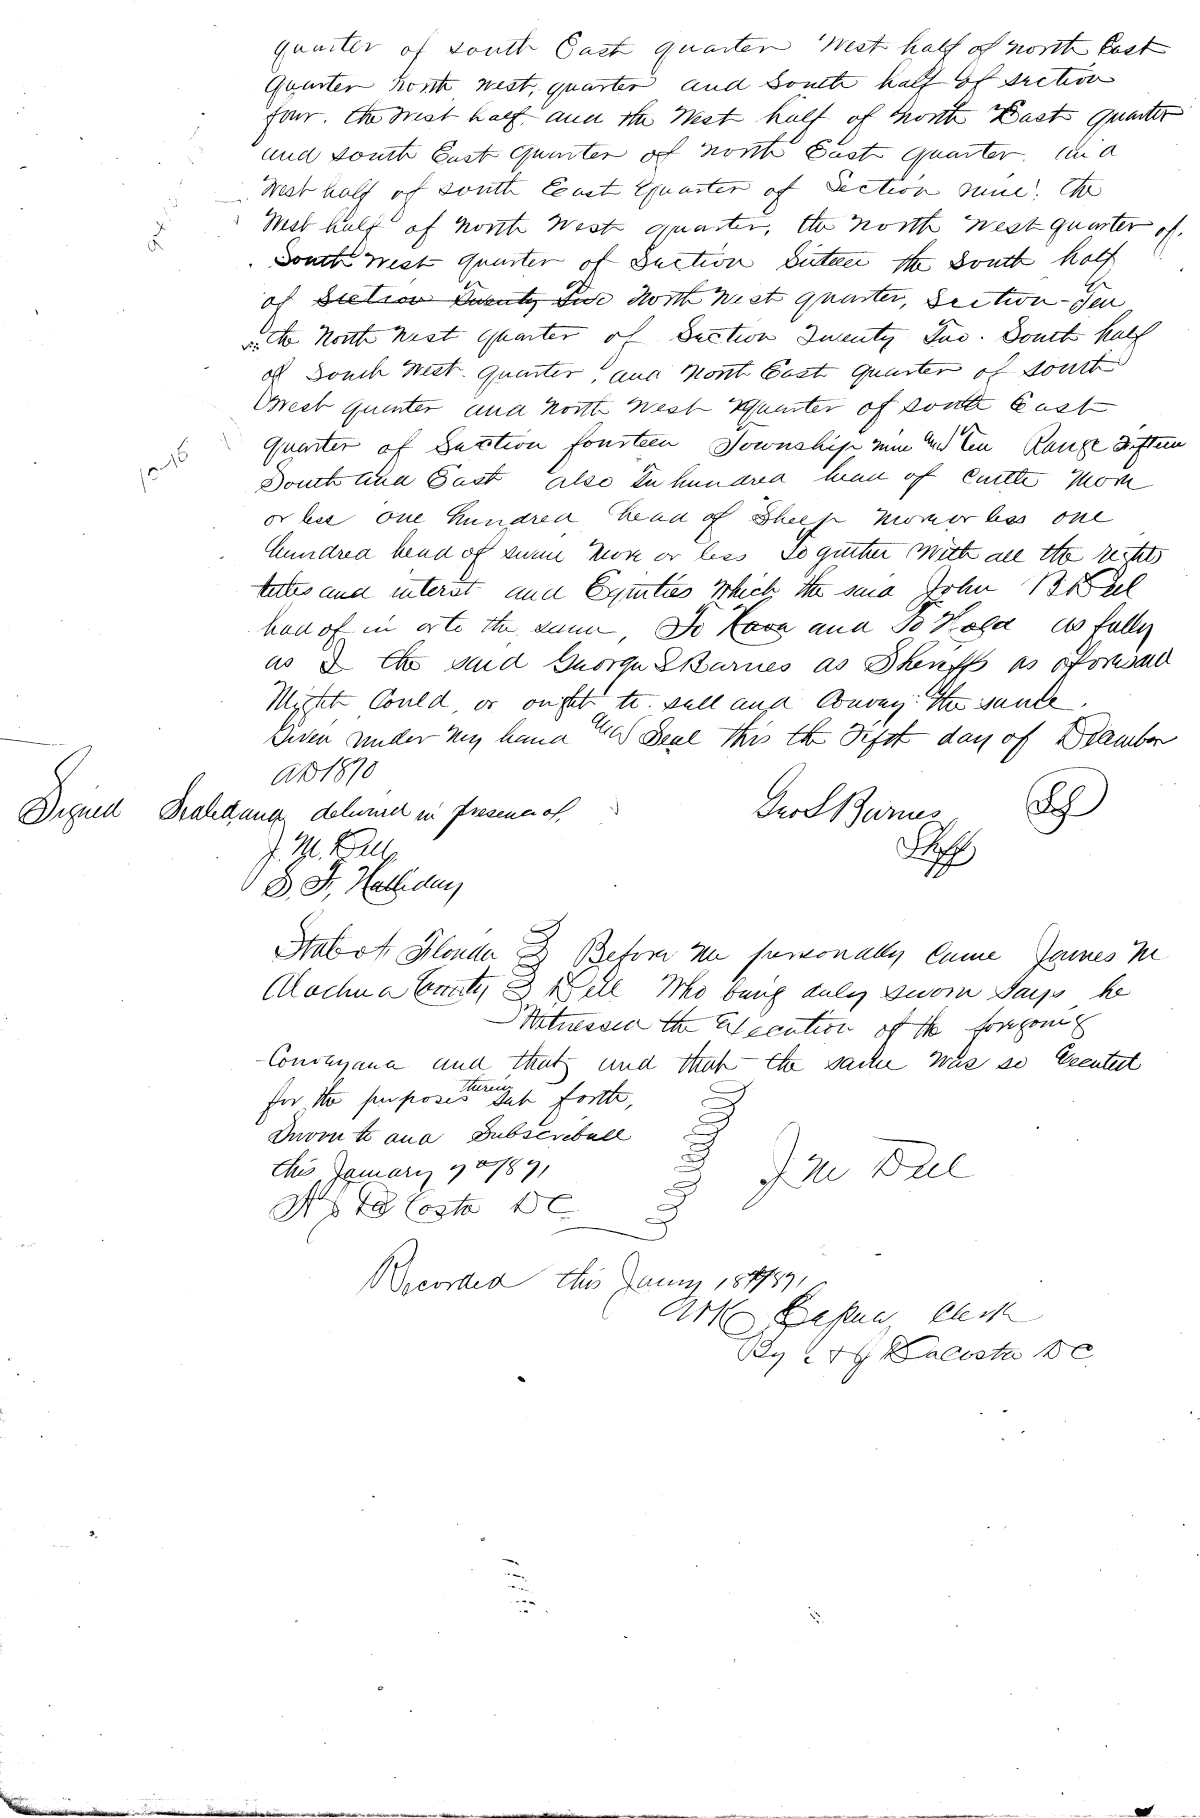 quarter of south East quarter West half of north East
quarter north west, quarter and South half of section
four. the West half and the West half of North East quarter
and south East quarter of north East quarter and
West half of south East quarter of Section nine. the
West half of north West quarter, the north West quarter of
South West quarter of Section Sixteen the South half
of Section Twenty Two North West quarter, Section Ten
the North West quarter of Section Twenty Two. South half
of South West quarter, and North East quarter of south
West quarter and north West quarter of south East
quarter of Section fourteen Township nine and Ten Range Fifteen
10-15
South and East also hundred head of Cattle More
or less one hundred head of Sheep More or less one
hundred head of swine More or less Together With all the rights
titles and interest and Equities Which the said John B Dell
had of in or to the same, To Have and To Hold as fully
as I the said George S Barnes as Sheriff as aforesaid
Might Could, or ought to sell and Convey the same.
Given under my hand and Seal this the Fifth day of December
AD 1870
Signed Sealed and delivered in presence of,
Geo S Barnes
Shff
J. M. Dell
S. F. Halliday
State of Florida Before Me personally Came James M
Alachua County Dell Who being duly sworn Says he
Witnessed the Execution of the foregoing
Conveyance and that and that the same Was so Executed
for the purposes therein set forth,
Sworn to and Subscribed
this January 1871
J M Dell
Da Costa DC
Recorded this January 18th 1871
Clerk
By Dacosta DC